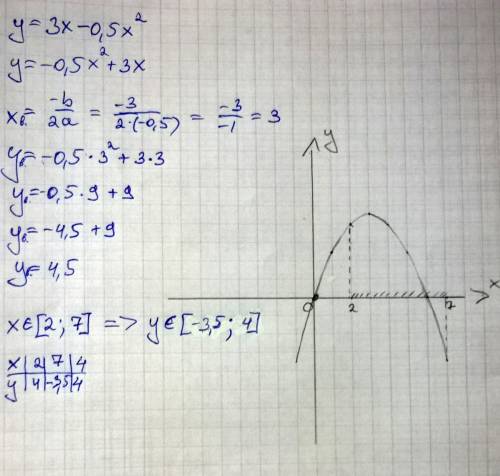 y = 3x - 0,5x²
y = -0,5x² + 3x
xв. = -b/2a = -3/2·(-0,5) = -3/-1 = 3
yв. = -0,5·3² + 3·3
yв. = -0,5·9 + 9
yв. = -4,5 + 9
yв. = 4,5
x∈[2; 7] => y∈[-3,5; 4]
x | 2 | 7 | 4
y | 4 | -3,5 | 4
y
x
0 2 7